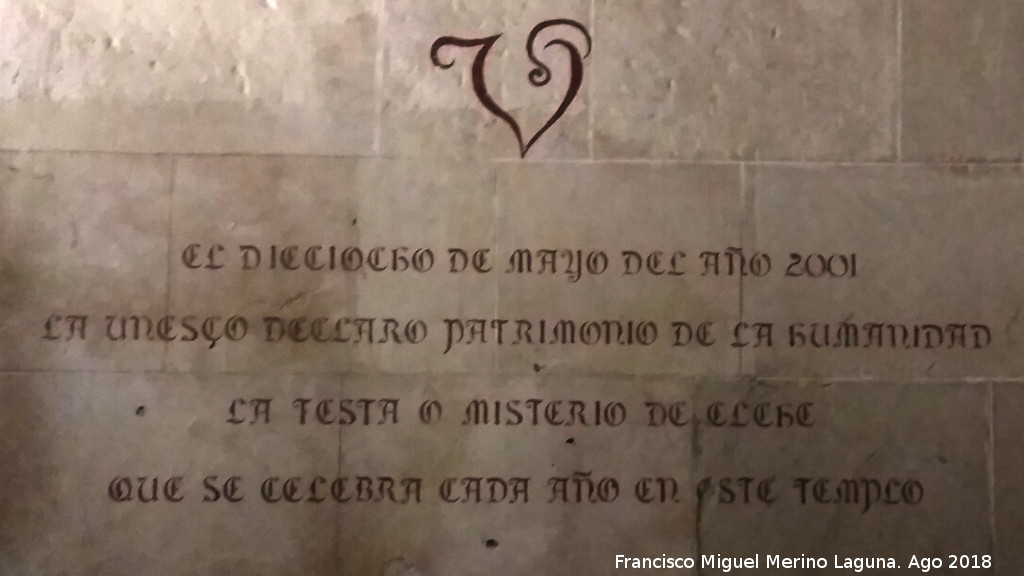 EL DIECIOCHO DE MAYO DEL AÑO 2001
LA UNESÇO DECLARO PATRIMONIO DE LA HUMANIDAD
LA FESTA O MISTERIO DE ELCHE
QUE SE CELEBRA CADA AÑO EN ESTE TEMPLO
Francisco Miguel Merino Laguna. Ago 2018